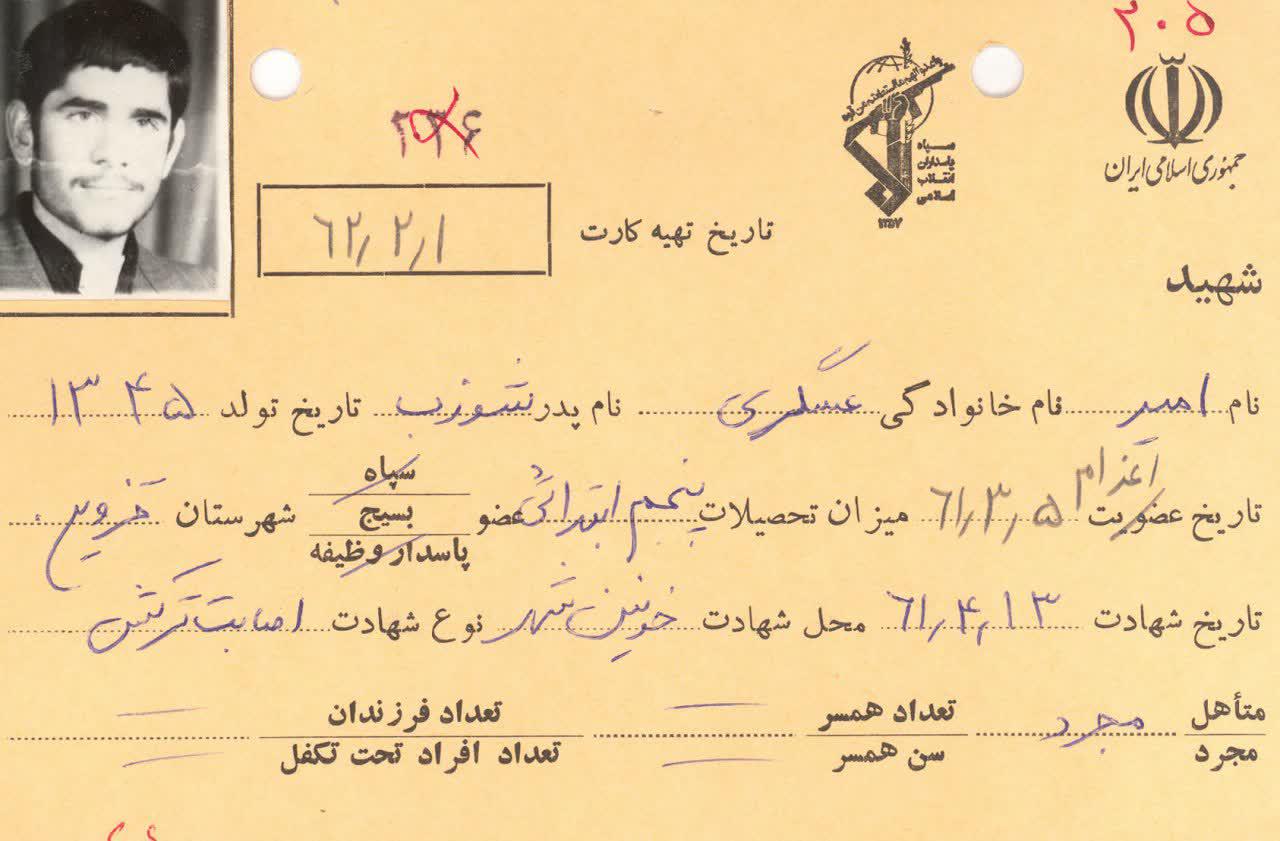 ۲۰۵
۲۳۶
جمهوری اسلامی ایران
سپاه
پاسداران
انقلاب
اسلامی
۱۳۵۷
تاریخ تهیه کارت ۶۲/۲/۱
شهید
نام امیر نام خانوادگی عسگری نام پدر تاریخ تولد ۱۳۴۵
اعزام
تاریخ عضویت ۶۱/۳/۵ میزان تحصیلات پنجم ابتدائی عضو سپاه بسیج پاسدار وظیفه شهرستان قزوین
تاریخ شهادت ۶۱/۴/۱۳ محل شهادت خونین شهر نوع شهادت اصابت ترکش
متأهل مجرد مجرد تعداد همسر سن همسر تعداد فرزندان تعداد افراد تحت تکفل